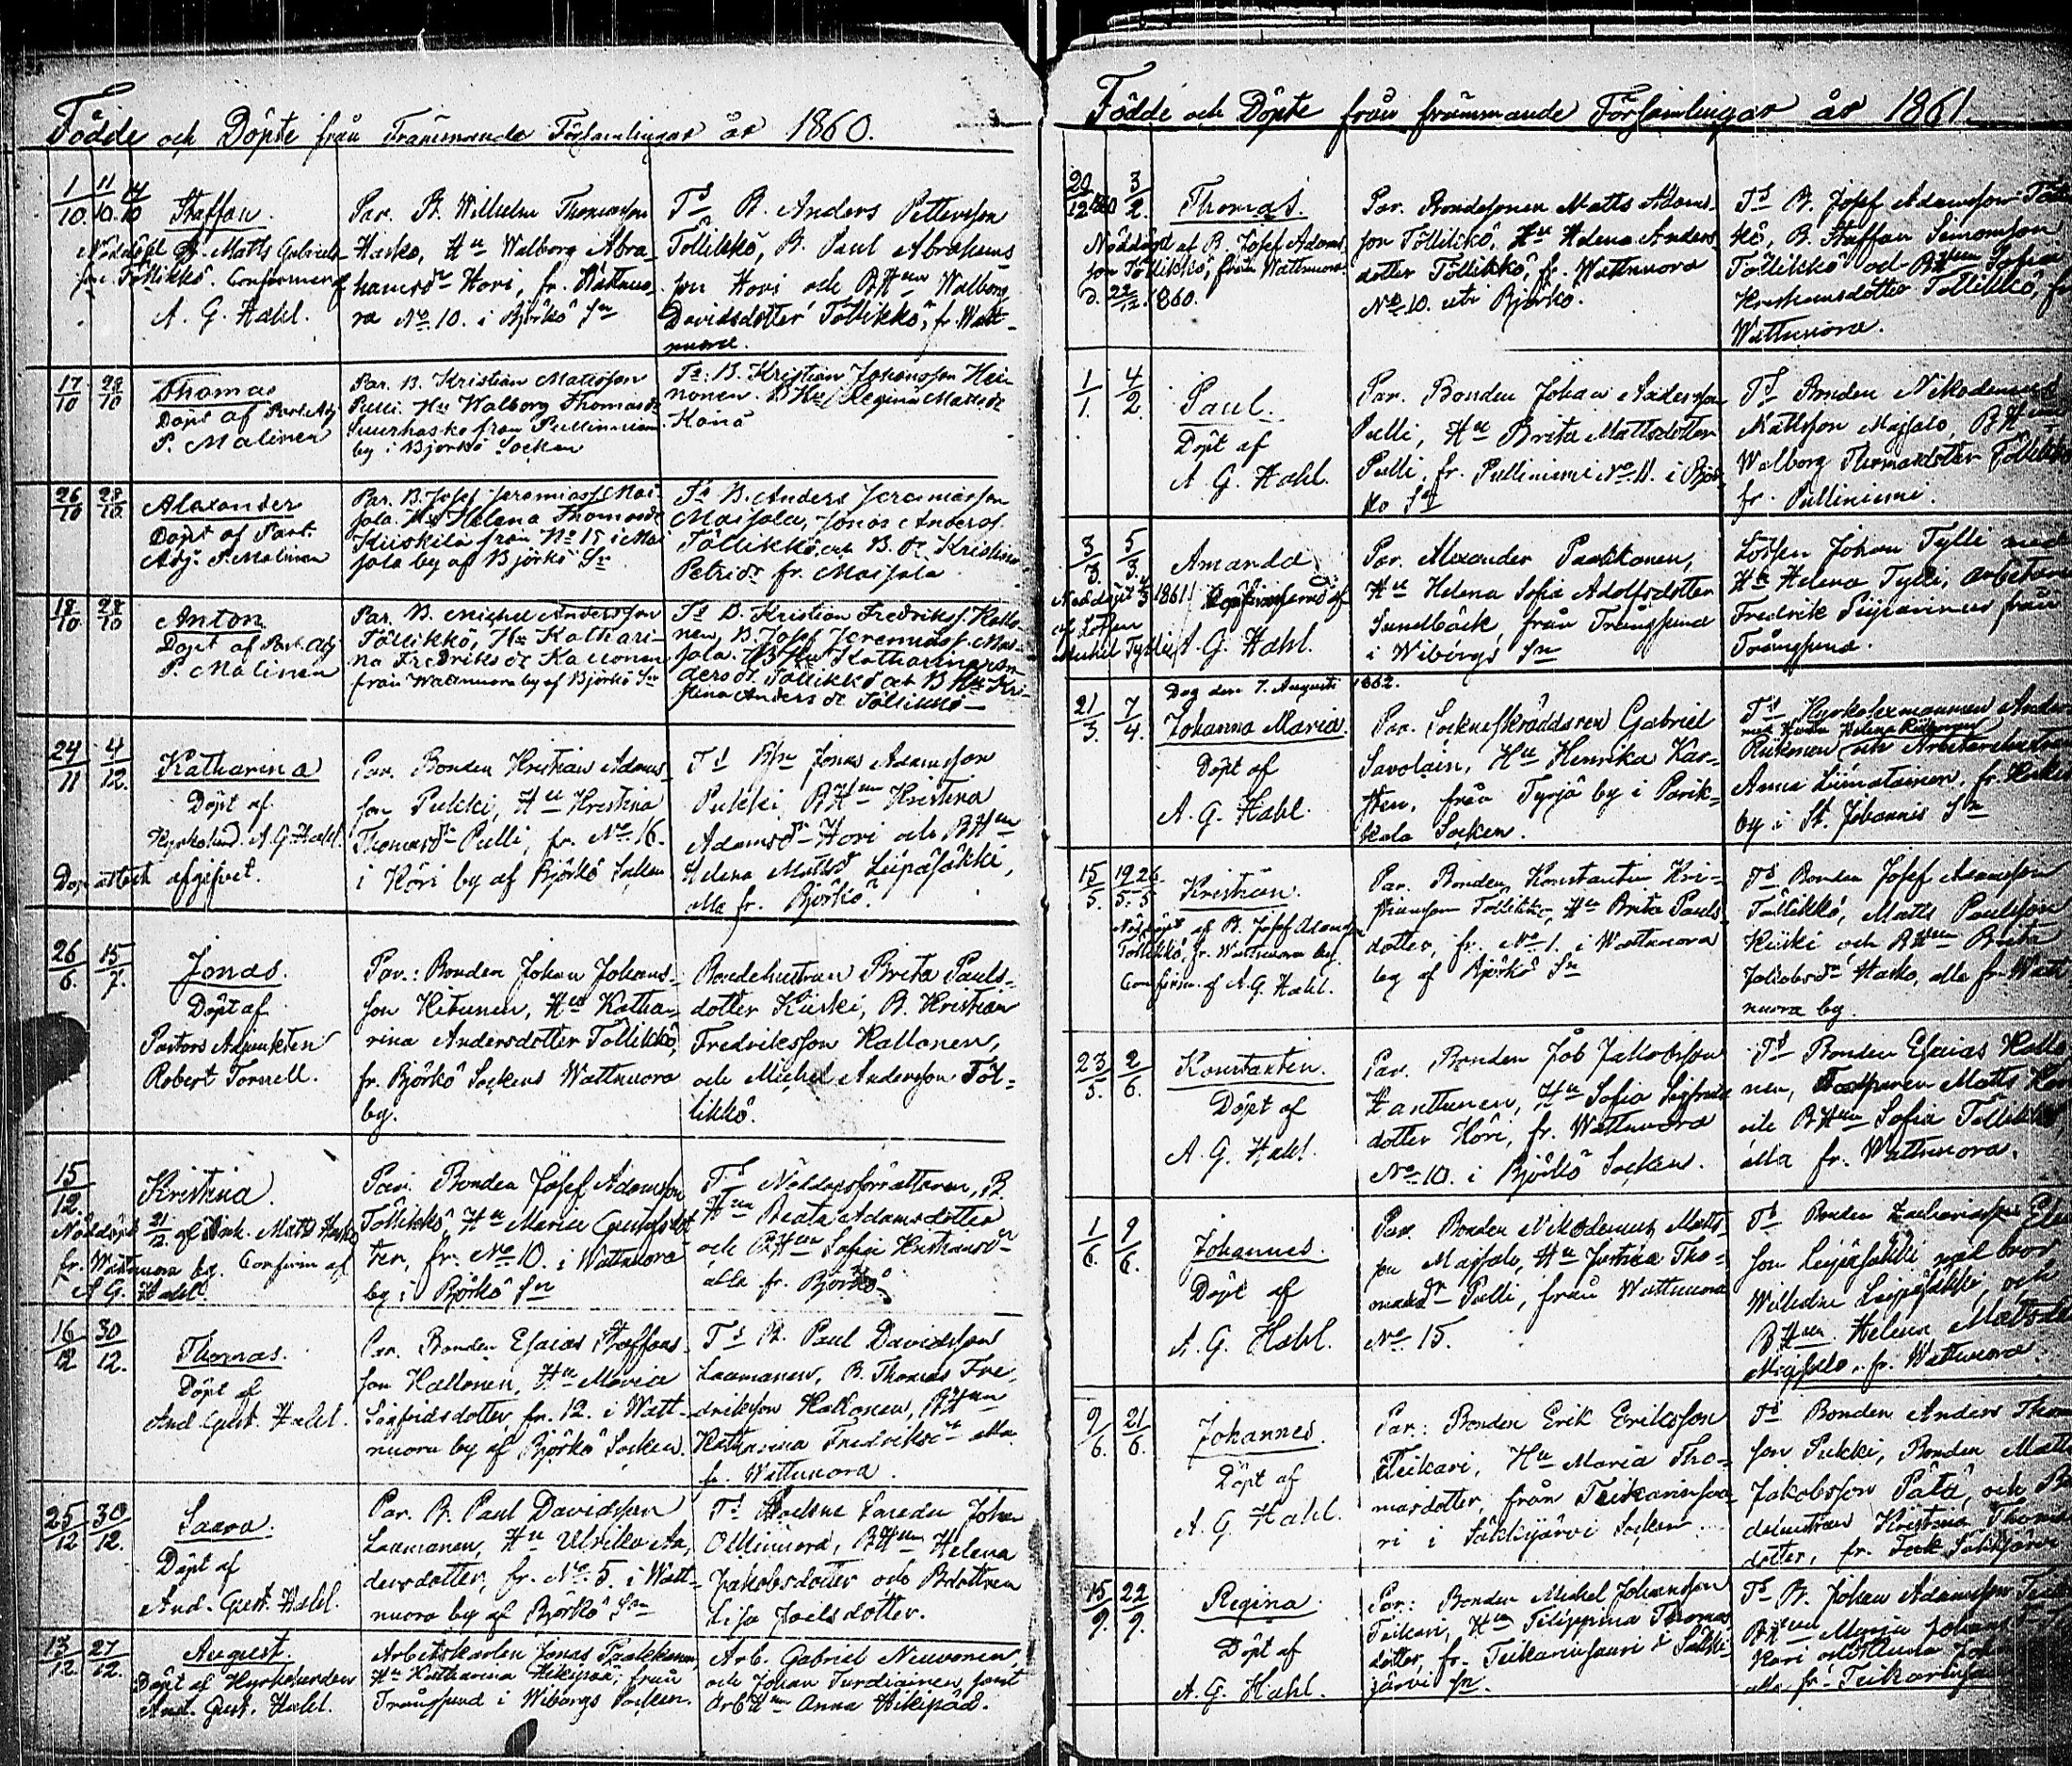 Födde och Döpte från Främmande Församlingar år 1860.
1/10 11/10 14/10
Staffan.
Nöddöpt af B. Matts Gabriels-
son Töllikkö. Confirmer. af
A. G. Hahl.
Par. B. Wilhelm Thomasson
Hasko, Hu Walborg Abra-
hamsdr Hovi, fr. Wattnuo-
ra No 10. i Björkö Sn
Ts B. Anders Pettersson
Töllikkö, B. Paul Abrahams-
son Hovi och BHun Walborg
Davidsdotter Töllikkö, fr. Watt-
nuora.
17/10 28/10
Thomas
Döpt af Past. Adj.
P. Malinen
Par. B. Kristian Matsson
Pulli. Hu Walborg Thomasdr
Suurhasko från Pulliniemi
by i Björkö Socken
Ts: B. Kristian Johansson Hei-
nonen. BHu Regina Mattsdr
Koino
26/10 28/10
Alexander
Döpt af Past.
Adj. P. Malinen
Par. B. Josef Jeremiass. Mai-
sola. Hu Helena Thomasdr
Kiiskilä från No 15 i Mai-
sola by af Björkö Sn
Ts B. Anders Jeremiasson
Maisola, Jonas Anderss.
Töllikkö, och B. dr Kristina
Petridr fr. Maisola
18/10 28/10
Anton
Döpt af Past. Adj
P. Malinen
Par. B. Michel Andersson
Töllikkö, Hu Kathari-
na Fredriksdr Kallonen
från Wattnuora by af Björkö Sn
Ts B. Kristian Fredrikss. Kallo-
nen, B. Josef Jeremiass. Mai-
sola. BHu Katharina An-
dersdr. Töllikkö och B Hu Kri-
stina Andersdr Töllikkö
24/11 4/12.
Katharina
Döpt af
Kyrkoherd. A G Hahl.
Dopattest afgifvet.
Par. Bonden Kristian Adams-
son Pukki, Hu Kristina
Thomasdr Pulli, fr. No 16.
i Höri by af Björkö Socken
Ts Bsn Jonas Adamsson
Pukki, BHun Kristina
Adamsdr Hovi och BHun
Helena Mattsdr Leipäsäkki,
alla fr. Björkö.
26/6. 15/7.
Jonas.
Döpt af
Pastors Adjunkten
Robert Tornell.
Par.: Bonden Johan Johans-
son Hitunen, Hu Katha-
rina Andersdotter Töllikkö,
fr. Björkö Sockens Wattnuora
by.
Bondehustrun Brita Pauls-
dotter Kiiski, B. Kristian
Fredriksson Kallonen,
och Michel Andersson Töl-
likkö.
15/12.
Kristina.
Nöddöpt 21/12. af Matts Hasko
fr. Wattnuora by. Confirm af
A G. Hahl.
Par. Bonden Josef Adamsson
Töllikkö, Hu Maria Gustafsdot-
ter, fr. No 10. i Wattnuora
by i Björkö Sn
Ts Nöddopsförrättaren, B.
Hun Beata Adamsdotter
och BHun Sofia Kristiansdr
alla fr. Björkö.
16/12 30/12.
Thomas.
Döpt af
And. Gust. Hahl.
Par. Bonden Esaias Staffans-
son Kallonen, Hu Maria
Sigfridsdotter, fr. 12. i Watt-
nuora by af Björkö Socken.
Ts B. Paul Davidsson
Laamanen, B. Thomas Fre-
driksson Kallonen, BHun
Katharina Fredriksdr alla
fr. Wattnuora.
25/12 30/12.
Saara.
Döpt af
And. Gust. Hahl.
Par. B. Paul Davidsson
Laamanen, Hu Ulrika An-
dersdotter, fr. No 5. i Watt-
nuora by af Björkö Sn
Ts Johan
Ollinuora, BHun Helena
Jakobsdotter och Bdottren
Lisa Joelsdotter.
13/12. 27/12.
August.
Döpt af Kyrkoherden
And. Gust. Hahl.
Arbetskarlen Jonas Paakkonen,
Hu Katharina Hikipää, från
Trångsund i Wiborgs Socken.
Arb. Gabriel Neuvonen,
och Johan Turdiainen, samt
ArbHun Anna Hikipää.
Födde och Döpte från främmande Församlingar år 1861.
29/12 1860 3/2.
Thomas.
Nöddöpt af B. Josef Adams-
son Töllikkö, från Wattnuora
d. 29/12. 1860.
Par. Bondesonen Matts Adams-
son Töllikkö, Hu Helena Anders-
dotter Töllikkö, fr. Wattnuora
No 10. uti Björkö.
Ts B. Josef Adamsson Töl
kö, B. Staffan Simonsson
Töllikkö och BHun Sofia
Kristiansdotter Töllikkö, fr
Wattnuora.
1/1. 4/2.
Paul.
Döpt af
A. G. Hahl.
Par. Bonden Johan Andersson
Pulli, Hu Brita Mattsdotter
Pulli, fr. Pulliniemi No 11. i Björ-
kö Sn
Ts Bonden Nikodemus
Mattsson Maisalo, BHun
Walborg Thomasdotter Töllikkö
fr. Pulliniemi.
3/3. 5/3.
Amanda.
Nöddöpt 1861. Confirmerad af
af Lotsen
Michel Tylli, A. G. Hahl.
Par. Alexander Paakkonen,
Hu Helena Sofia Adolfsdotter
Sundbäck, från Trångsund
i Wiborgs Sn
Lotsen Johan Tylli med
Hu Helena Tylli, arbetaren
Fredrik från
Trångsund.
Dog den 7. Augusti 1862.
21/3. 7/4.
Johanna Maria.
Döpt af
A. G. Hahl.
Par. Sockneskräddaren Gabriel
Savolain, Hu Henrika Kar-
sten, från Tyrjä by i Parik-
kala Socken.
Ts Kyrkolexmannen Anders
med Hustru Helena Riikonen
Riikonen och Arbetarehustrun
Anna Liimatainen, fr.
by i St. Johannis Sn
15/5. 19/5. 26/5
Kristian.
Nöddöpt af B. Josef Adamsson
Töllikkö, fr. Wattnuora by.
Confirm. af A. G. Hahl.
Par. Bonden Konstantin Kri-
stiansson Töllikkö, Hu Brita Pauls-
dotter, fr. No 1. i Wattnuora
by af Björkö Sn
Ts Bonden Josef Adamsson
Töllikkö, Matts Paulsson
Kiiski och BHun Brita
Jakobsdr Hasko, alla fr. Watt
nuora by.
23/5. 2/6.
Konstantin.
Döpt af
A. G. Hahl.
Par. Bonden Job Jakobsson
Hanttunen, Hu Sofia Sigfrids-
dotter Höri, fr. Wattnuora
No 10. i Björkö Socken.
Ts Bonden Esaias Kallo
nen, Matts
och BHun Sofia Töllikkö,
alla fr. Wattnuora.
1/6. 9/6.
Johannes.
Döpt af
A. G. Hahl.
Par. Bonden Nikodemus Matts-
son Maisalo, Hu Justina Tho-
masdr Pulli, från Wattnuora
No 15.
Ts Bonden
son Leipäsäkki med bror
Wilhelm Leipäsäkki, och
BHun Helena Mattsd
Maisalo, fr. Wattnuora.
9/6. 21/6.
Johannes.
Döpt af
A. G. Hahl.
Par.: Bonden Erik Eriksson
Teikari, Hu Maria Tho-
masdotter, från Teikarinsaa-
ri i Säkkijärvi Socken.
Ts Bonden Anders Thom
son Pukki, Bonden Matts
Jakobsson Pätä, och B
dehustrun Kristina Thomas
dotter, fr. Säkkijärvi
15/9. 22/9.
Regina.
Döpt af
A. G. Hahl.
Par: Bonden Michel Johansson
Teikari, Hu Filippina Thomas
dotter, fr. Teikarinsaari i Säkki-
järvi Sn.
Ts B. Johan Adamsson Tei
BHun Maria Johans
kari och Helena Joh
alla fr. Teikarinsaa